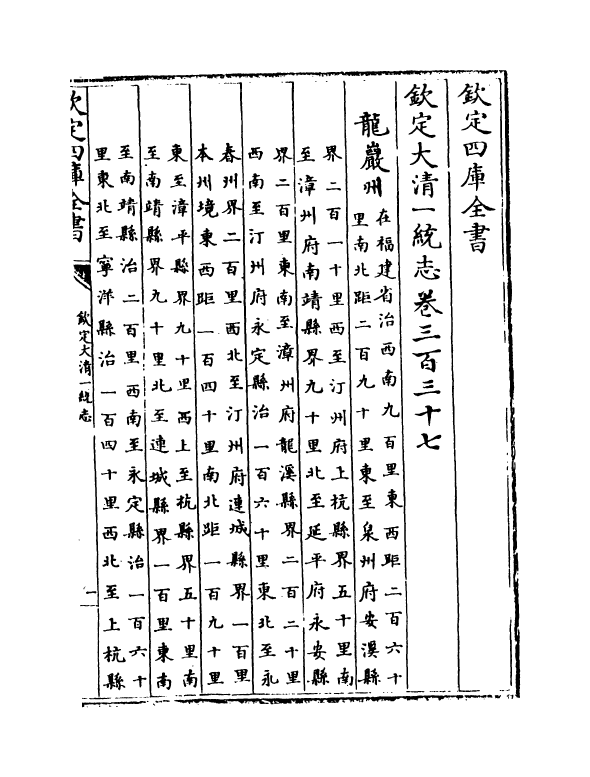 欽定四庫全書
欽定大清一統志卷三百三十七
龍巖州
在福建省治西南九百里東西距二百六十
里南北距二百九十里東至泉州府安溪縣
界二百一十里西至汀州府上杭縣界五十里南
至漳州府南靖縣界九十里北至延平府永安縣
界二百里東南至漳州府龍溪縣界二百二十里
西南至汀州府永定縣治一百六十里東北至永
春州界二百里西北至汀州府連城縣界一百里
本州境東西距一百四十里南北距一百九十里
東至漳平縣界九十里西上至杭縣界五十里南
至南靖縣界九十里北至連城縣界一百里東南
至南靖縣治二百里西南至永定縣治一百六十
里東北至寧洋縣治一百四十里西北至上杭縣
欽定四庫全書
欽定大清一統志
一